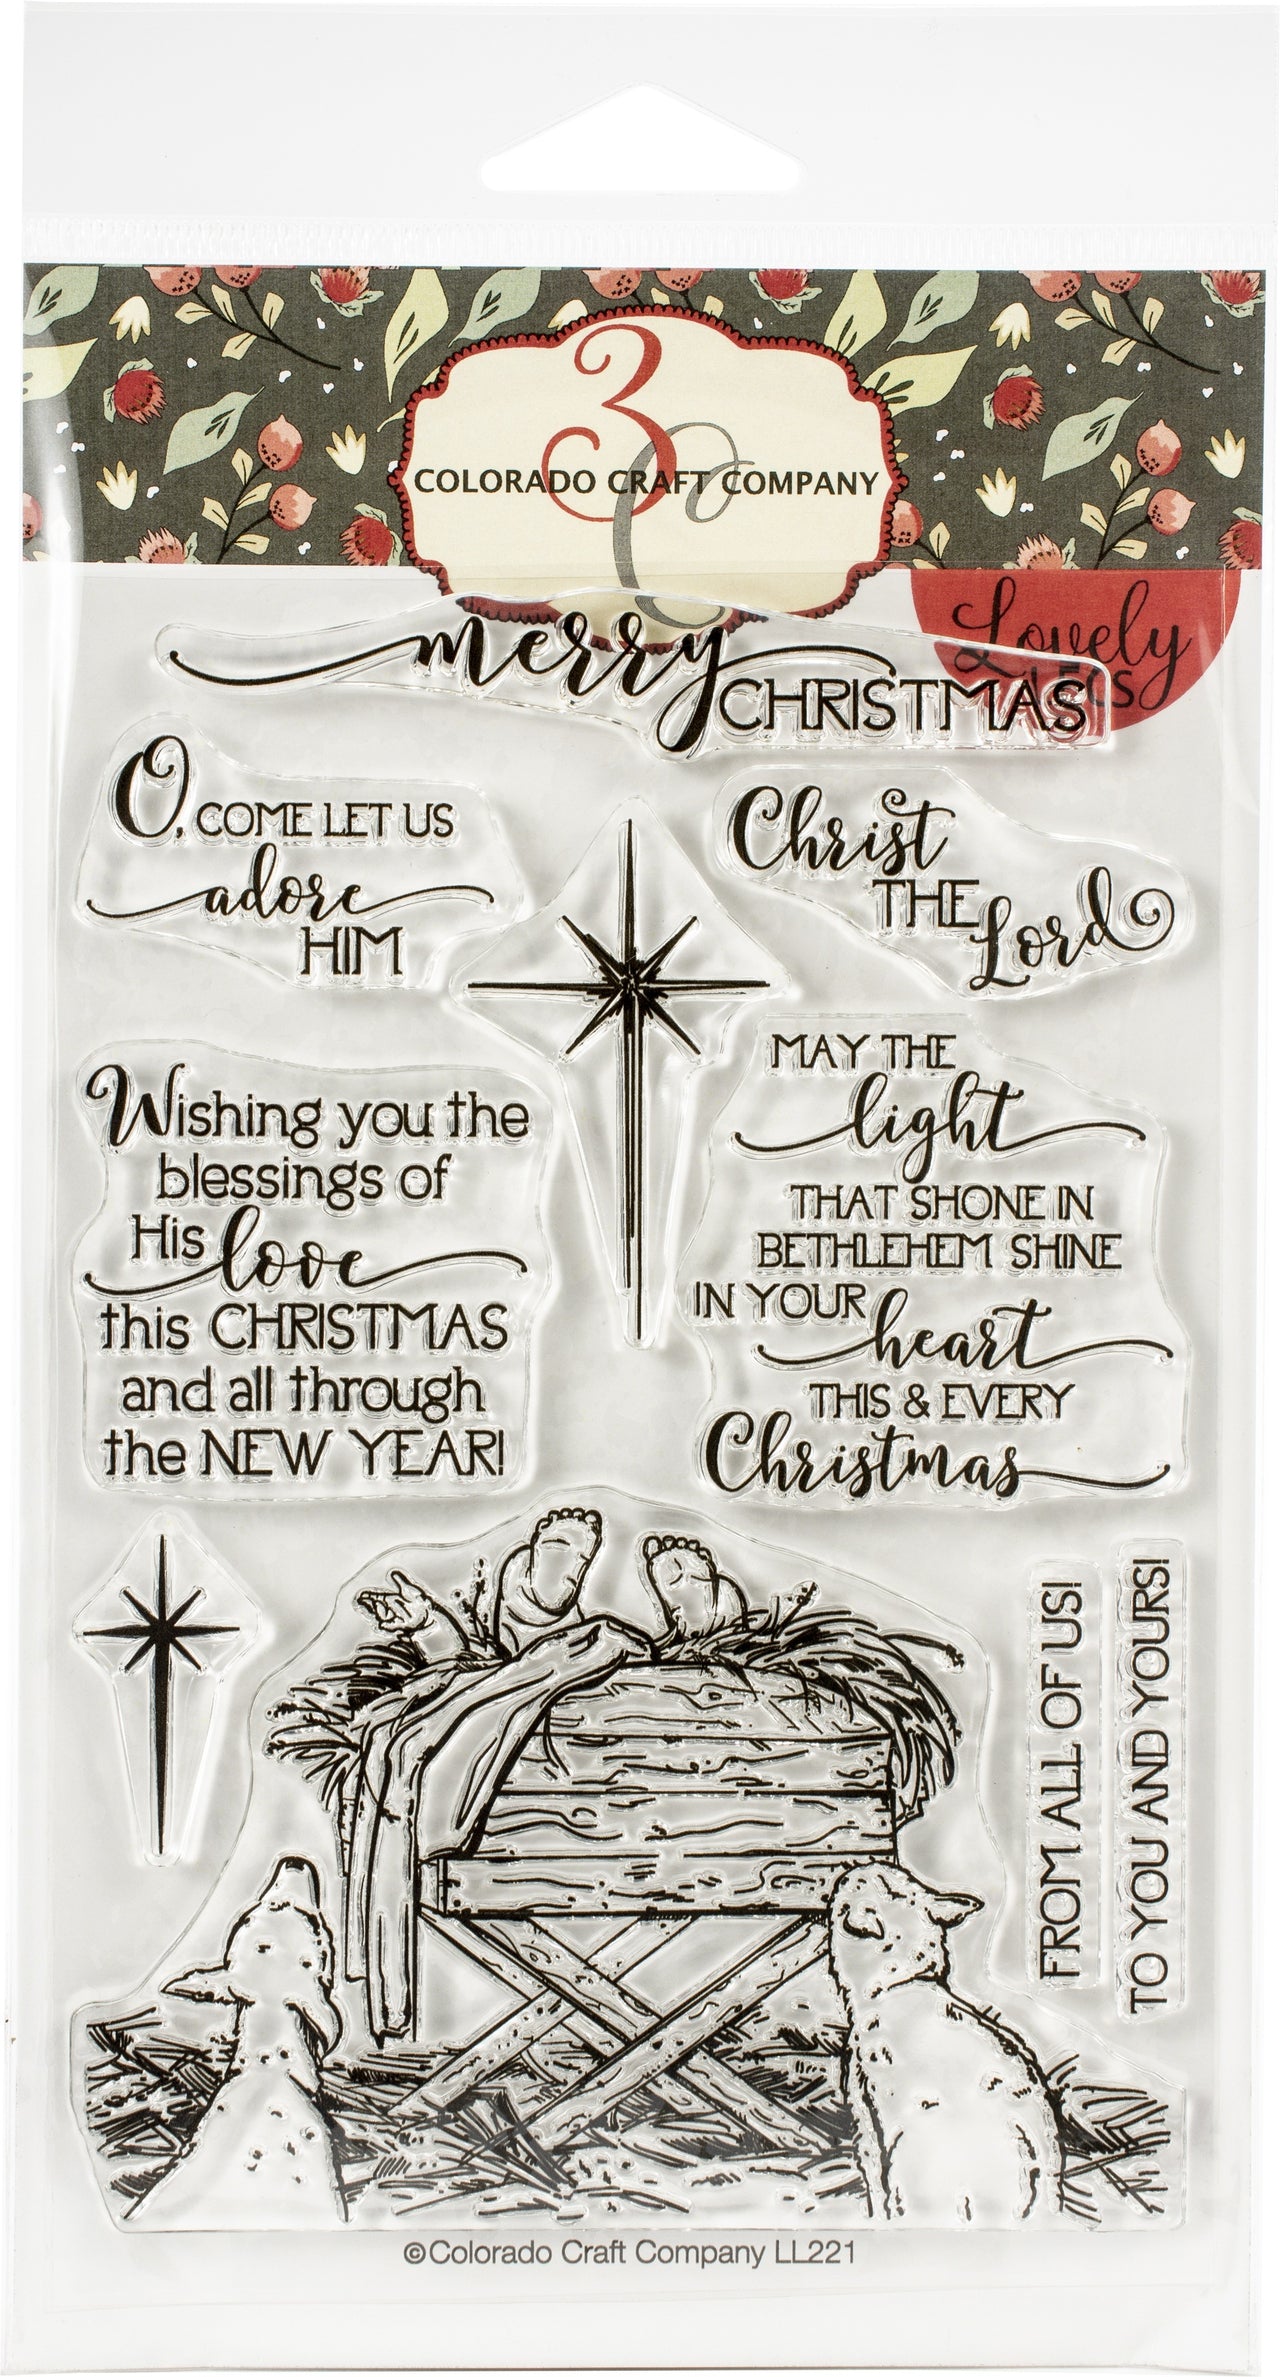 3C
COLORADO CRAFT COMPANY
Lovely
merry
CHRISTMAS
O, COME LET US
adore
HIM
Christ
THE
Lord
Wishing you the
blessings of
His love
this CHRISTMAS
and all through
the NEW YEAR!
MAY THE
light
THAT SHONE IN
BETHLEHEM SHINE
IN YOUR heart
THIS & EVERY
Christmas
FROM ALL OF US!
TO YOU AND YOURS!
©Colorado Craft Company LL221